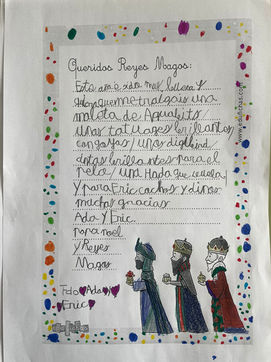 Queridos Reyes Magos:
Este año
que me traigais una
maleta de Aquabeits/
unas tatuages brillantes
con gafas/ una
dotas brillantes para el
pelo/ una Hada que vuela
y para Eric coches y dinos
muchas gracias
Ada Y Eric
papa noel
Y Reyes
Magos
Fdo: Ada
Eric